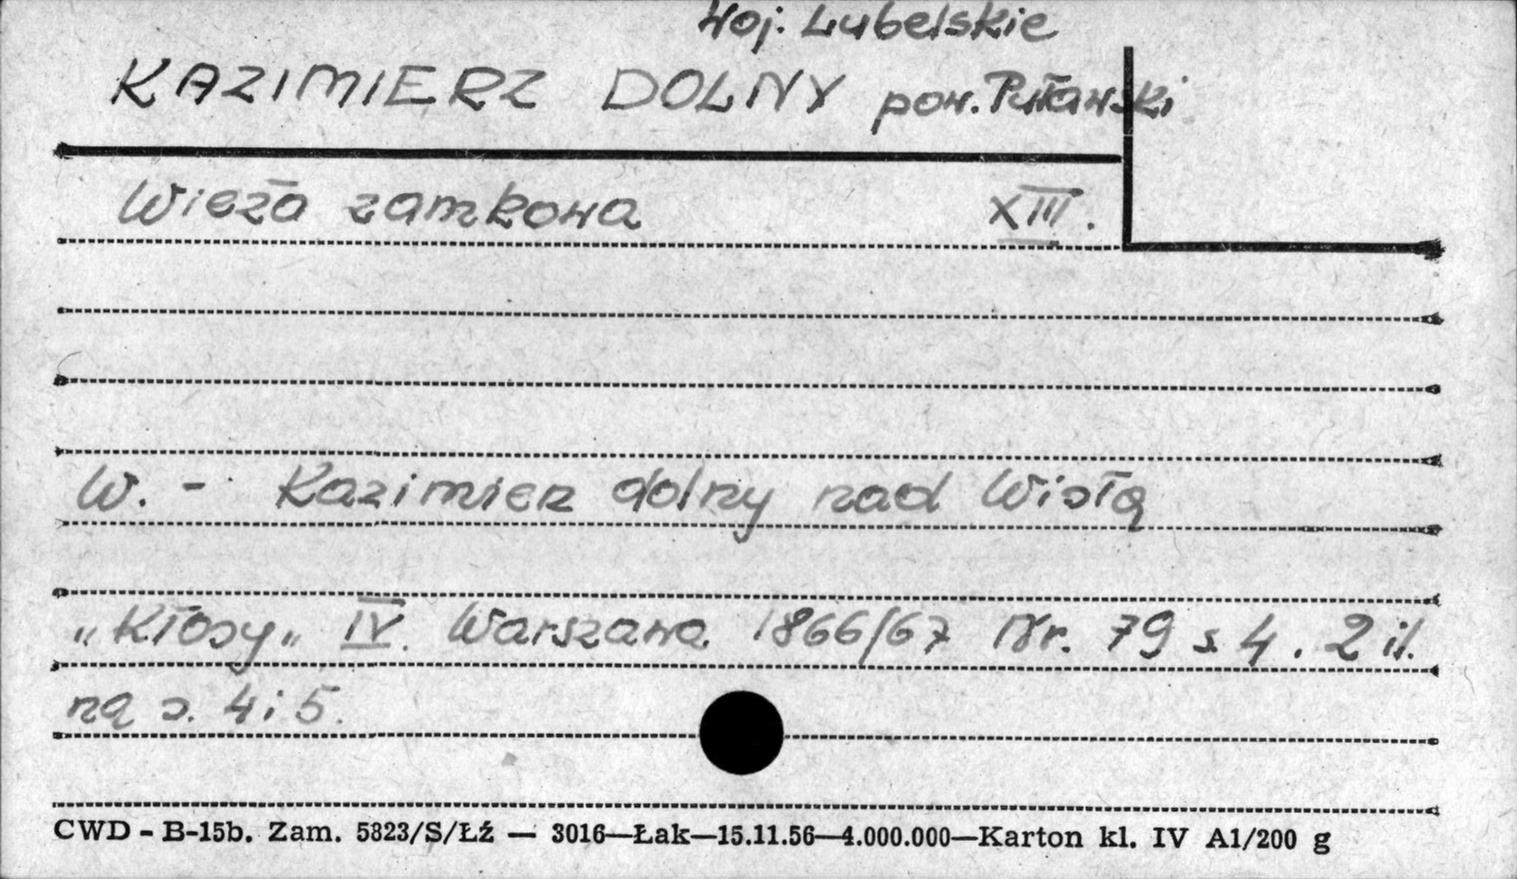 Woj. Lubelskie
KAZIMIERZ DOLNY pow. Puławski
Wieża zamkowa XIII.
W. - Kazimierz dolny nad Wisłą
„Kłosy„ IV. Warszawa 1866/67 Nr. 79 s 4. 2 il.
na s. 4 i 5.
CWD - B-15b. Zam. 5823/S/Łź — 3016—Łak—15.11.56—4.000.000—Karton kl. IV A1/200 g